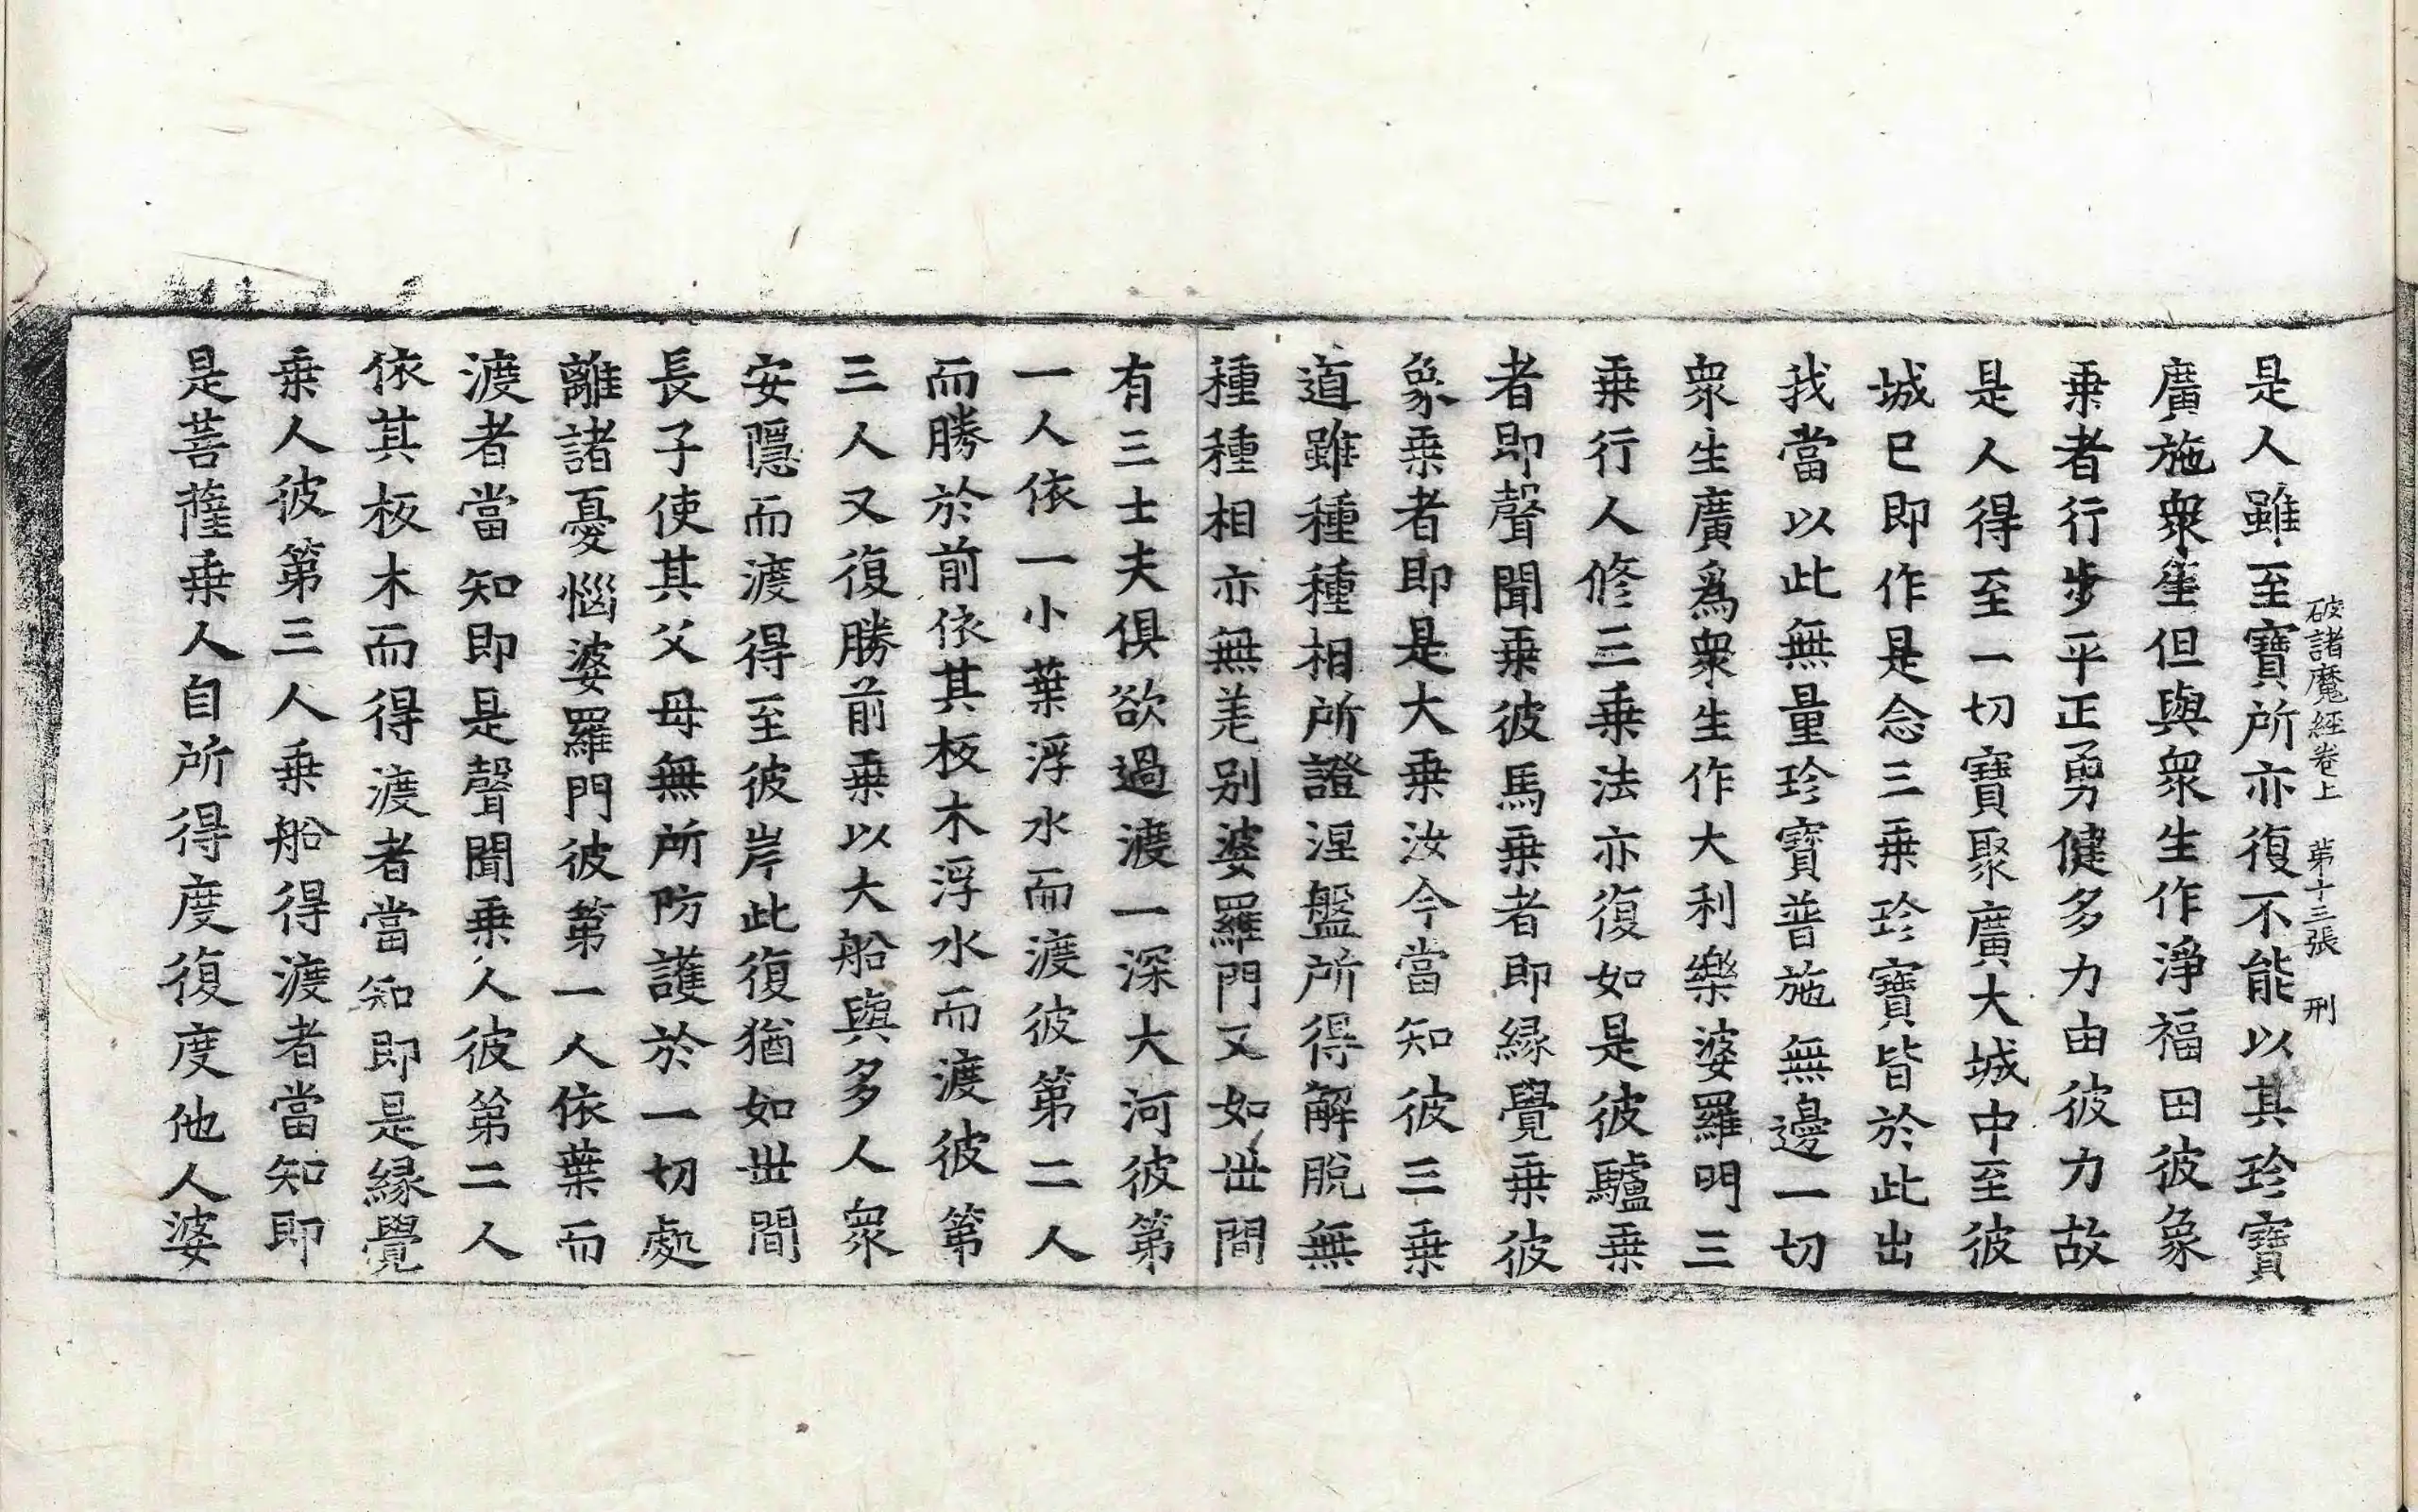 破諸魔經卷上 第十三張 刑
是人雖至寶所亦復不能以其珍寶
廣施衆生但與衆生作淨福田彼象
乗者行步平正勇健多力由彼力故
是人得至一切寶聚廣大城中至彼
城已即作是念三乗珍寶皆於此出
我當以此無量珍寶普施無邊一切
衆生廣爲衆生作大利樂婆羅明三
乗行人修三乗法亦復如是彼驢乗
者即聲聞乗彼馬乗者即縁覺乗彼
象乗者即是大乗汝今當知彼三乗
道雖種種相所證涅盤所得解脫無
種種相亦無差别婆羅門又如丗間
有三士夫俱欲過渡一深大河彼第
一人依一小葉浮水而渡彼第二人
而勝於前依其板木浮水而渡彼第
三人又復勝前乗以大船與多人衆
安隱而渡得至彼岸此復猶如丗間
長子使其父母無所防護於一切處
離諸憂惱婆羅門彼第一人依葉而
渡者當知即是聲聞乗人彼第二人
依其板木而得渡者當知即是縁覺
乗人彼第三人乗船得渡者當知即
是菩薩乗人自所得度復度他人婆